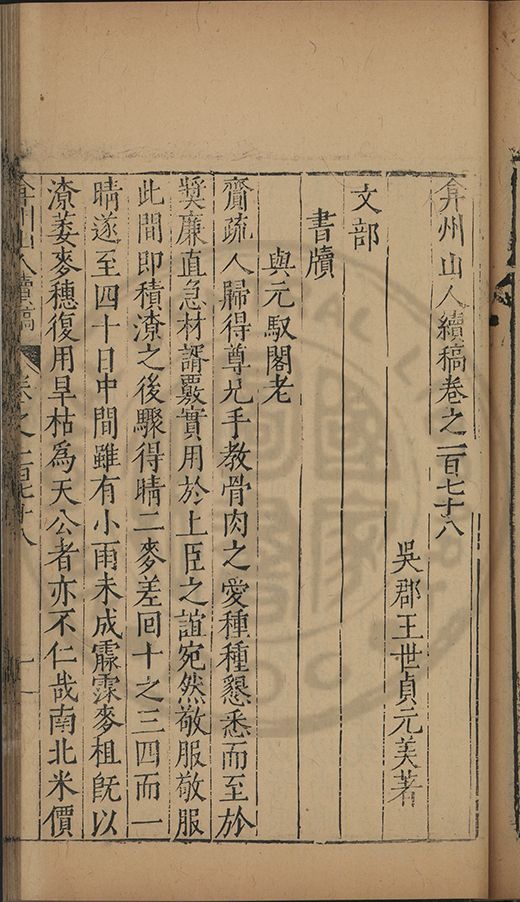 弇州山人續稿卷之一百七十八
吳郡王世貞元美著
文部
書牘
與元馭閣老
齎疏人歸得尊兄手教骨肉之愛種種懇悉而至於
奬廉直急材諝覈實用於上臣之誼宛然敬服敬服
此間即積潦之後驟得晴二麥差回十之三四而一
晴遂至四十日中間雖有小雨未成霡霂麥租旣以
潦萎麥穗復用旱枯為天公者亦不仁哉南北米價
弇州山人續稿 卷之一百七十八 一